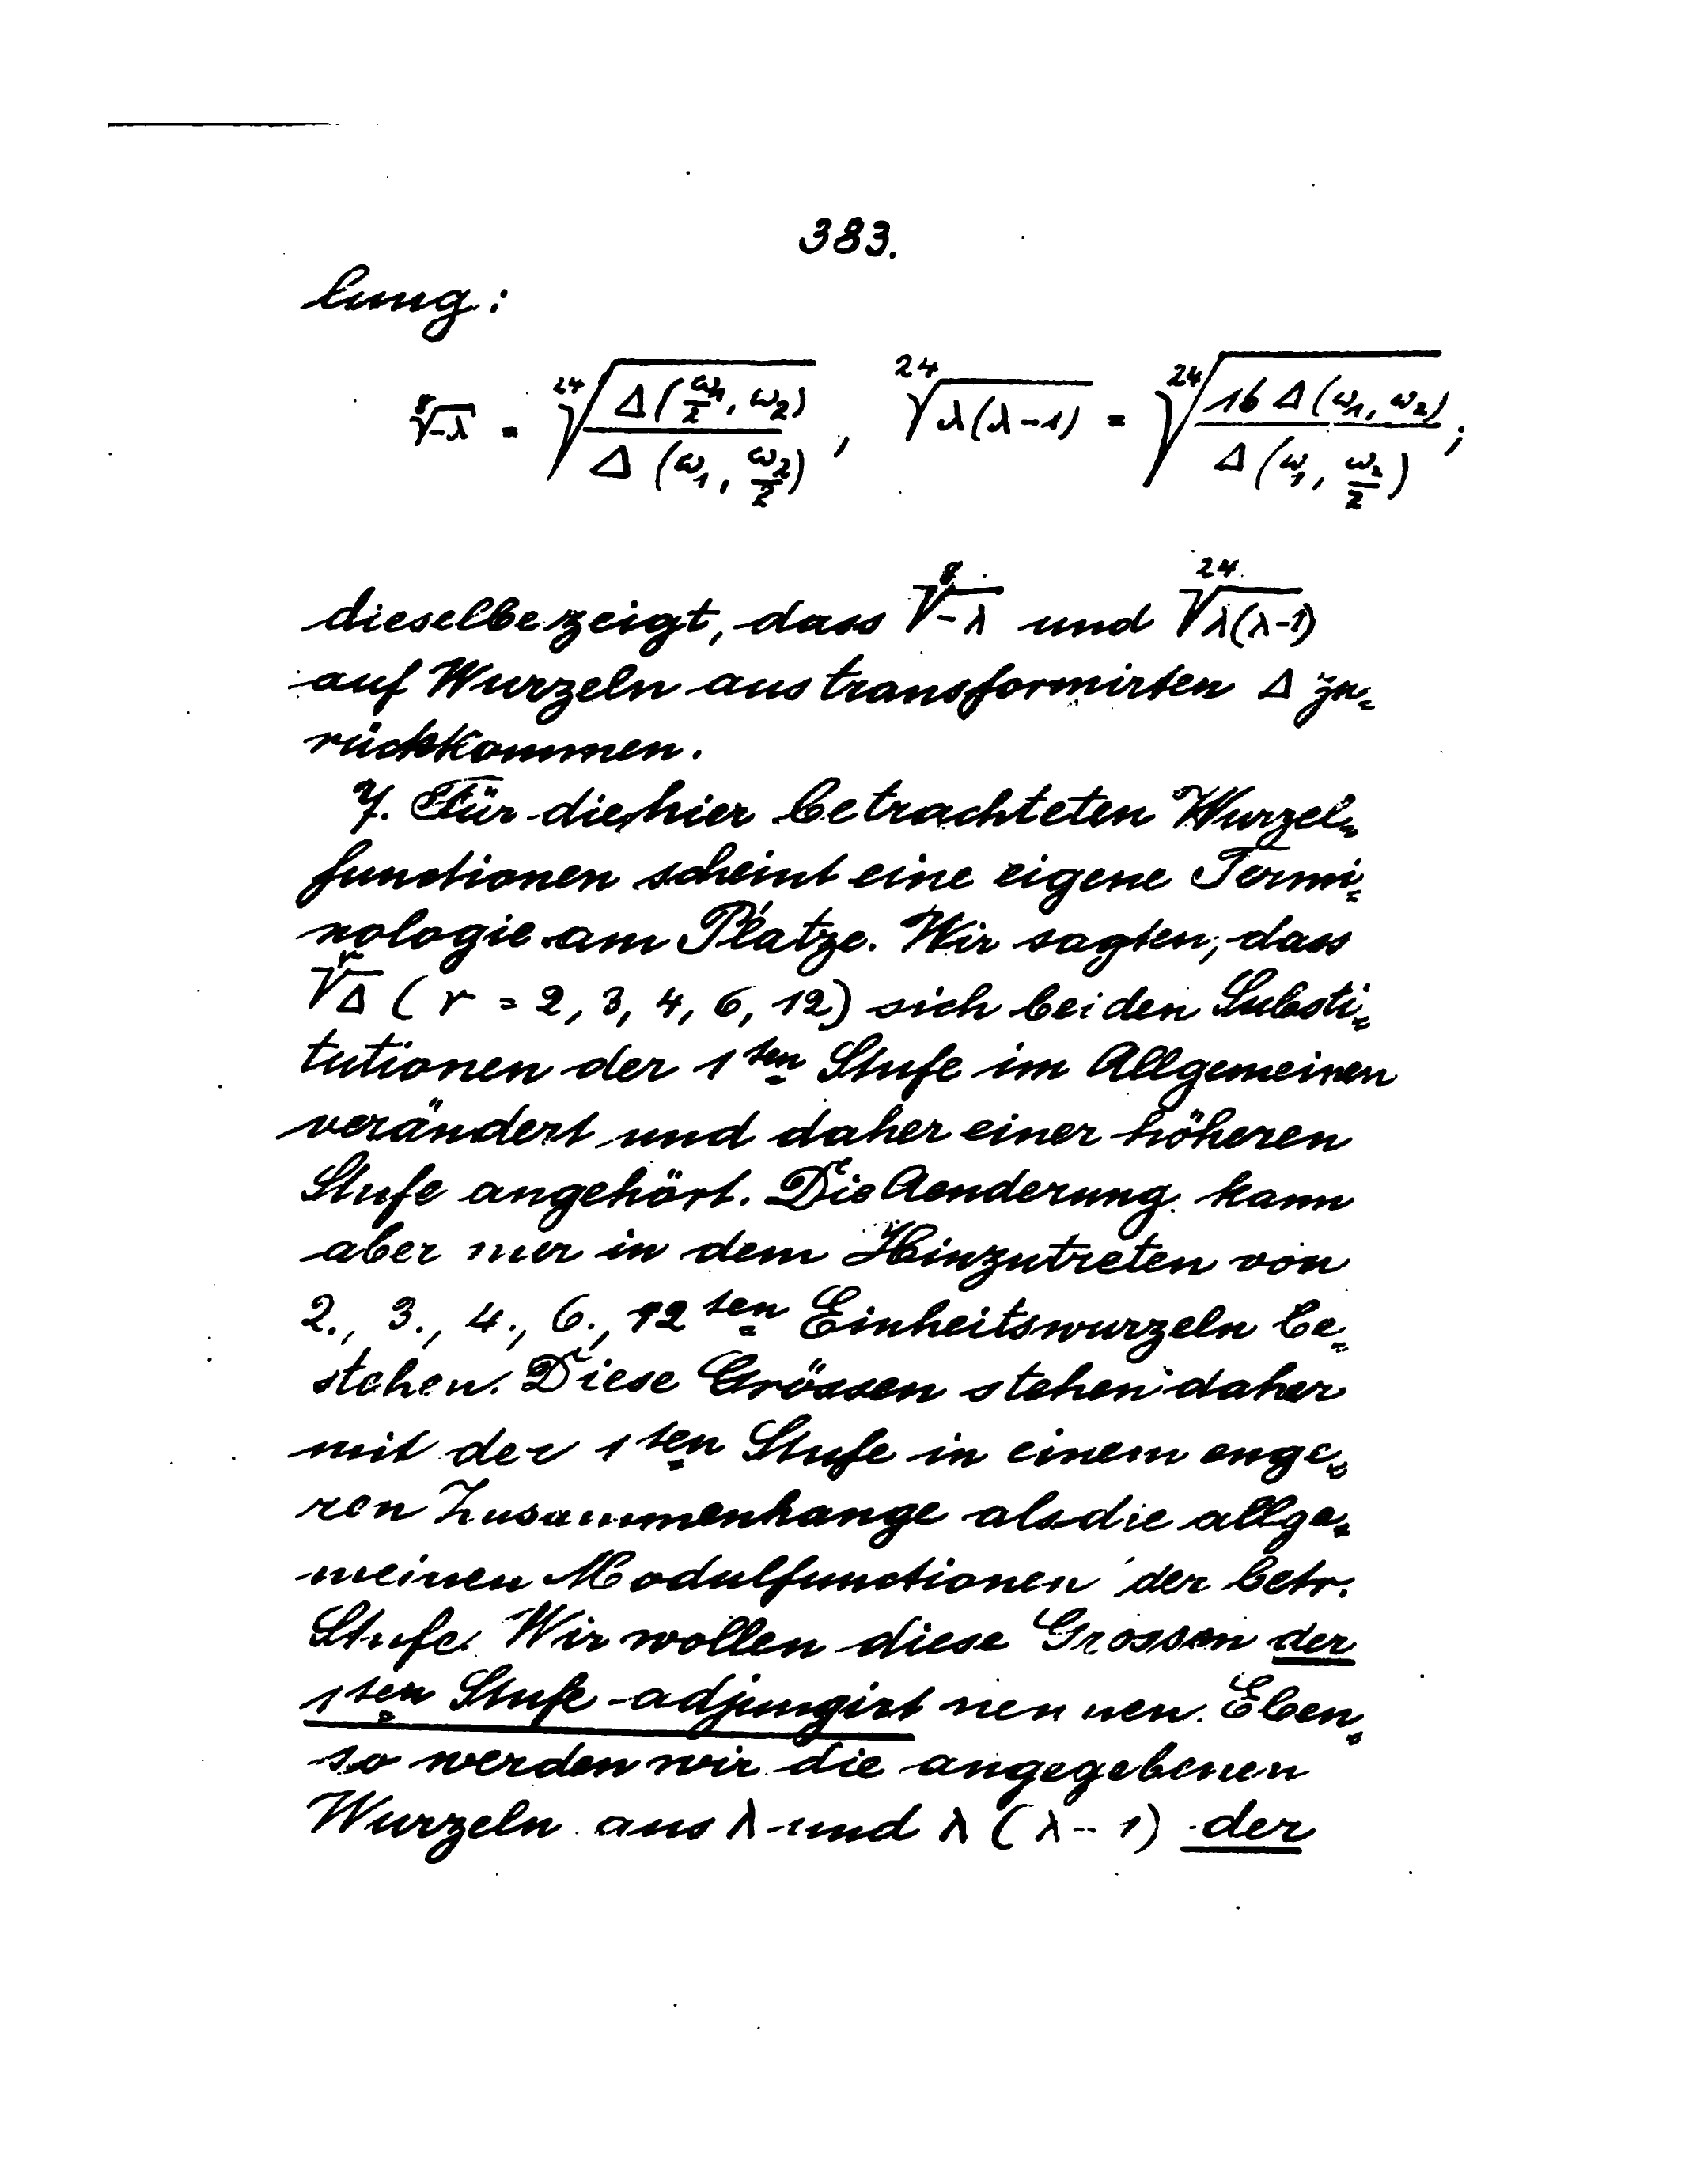 383.
lung:
$\sqrt[8]{-\lambda} = \sqrt[24]{\frac{\Delta(\frac{\omega_1}{2}, \omega_2)}{\Delta(\omega_1, \frac{\omega_2}{2})}}, \sqrt[24]{\lambda(\lambda-1)} = \sqrt[24]{\frac{16\Delta(\omega_1, \omega_2)}{\Delta(\omega_1, \frac{\omega_2}{2})}};$
dieselbe zeigt, dass $\sqrt[8]{-\lambda}$ und $\sqrt[24]{\lambda(\lambda-1)}$
auf Wurzeln aus transformirten Δ zu=
rückkommen.
7. Für die hier betrachteten Wurzel=
functionen scheint eine eigene Termi=
nologie am Platze. Wir sagten, dass
$\sqrt[r]{\Delta}$ (r = 2, 3, 4, 6, 12) sich bei den Substi=
tutionen der 1ten Stufe im Allgemeinen
verändert und daher einer höheren
Stufe angehört. Die Aenderung kann
aber nur in dem Hinzutreten von
2., 3., 4., 6., 12ten Einheitswurzeln be=
stehen. Diese Grössen stehen daher
mit der 1ten Stufe in einem enge=
ren Zusammenhange als die allge=
meinen Modulfunctionen der betr.
Stufe. Wir wollen diese Grossen der
1ten Stufe adjungirt nennen. Eben=
so werden wir die angegebenen
Wurzeln aus λ und λ (λ - 1) der